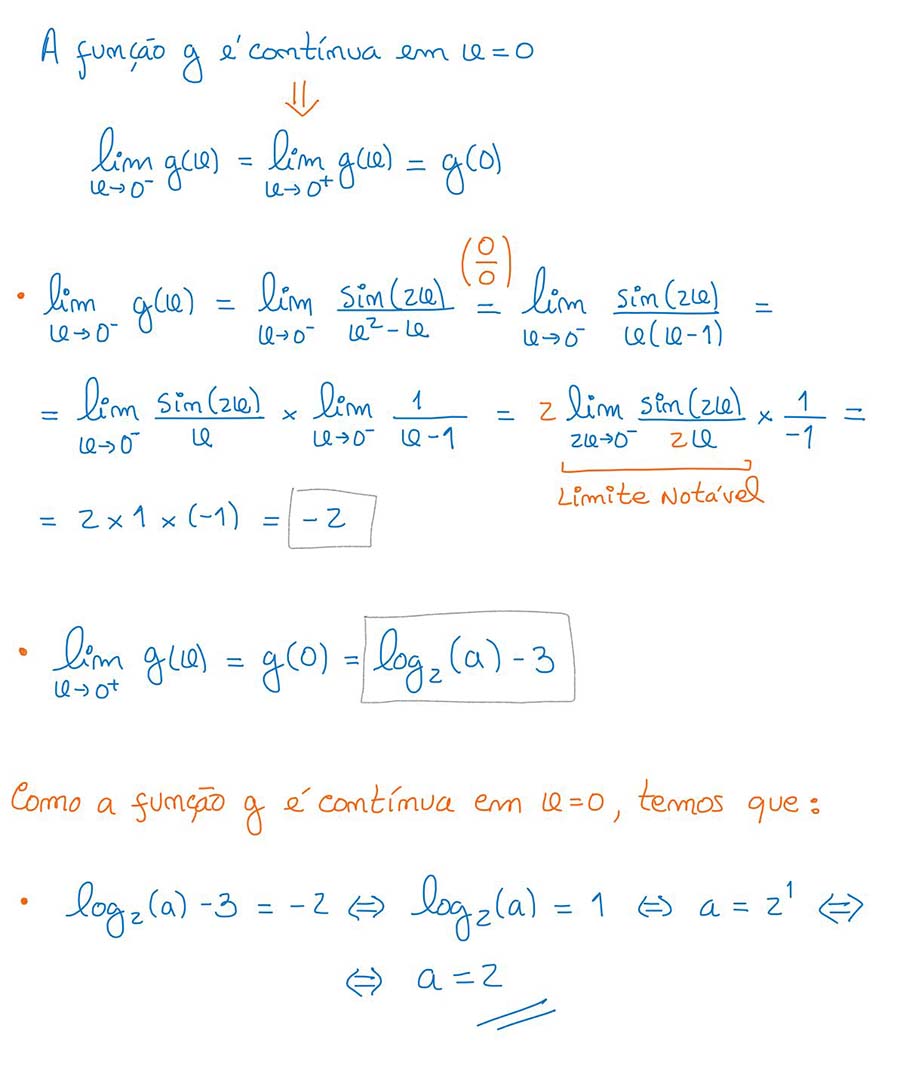 A função g é contínua em x=0
⇓
lim x→0⁻ g(x) = lim x→0⁺ g(x) = g(0)
• lim x→0⁻ g(x) = lim x→0⁻ sin(2x)/(x²-x) =(0/0) lim x→0⁻ sin(2x)/(x(x-1)) =
= lim x→0⁻ sin(2x)/x × lim x→0⁻ 1/(x-1) = 2 lim 2x→0⁻ sin(2x)/(2x) × 1/(-1) =
Limite Notável
= 2 × 1 × (-1) = -2
• lim x→0⁺ g(x) = g(0) = log₂(a) - 3
Como a função g é contínua em x=0, temos que:
• log₂(a) - 3 = -2 ⇔ log₂(a) = 1 ⇔ a = 2¹ ⇔
⇔ a = 2